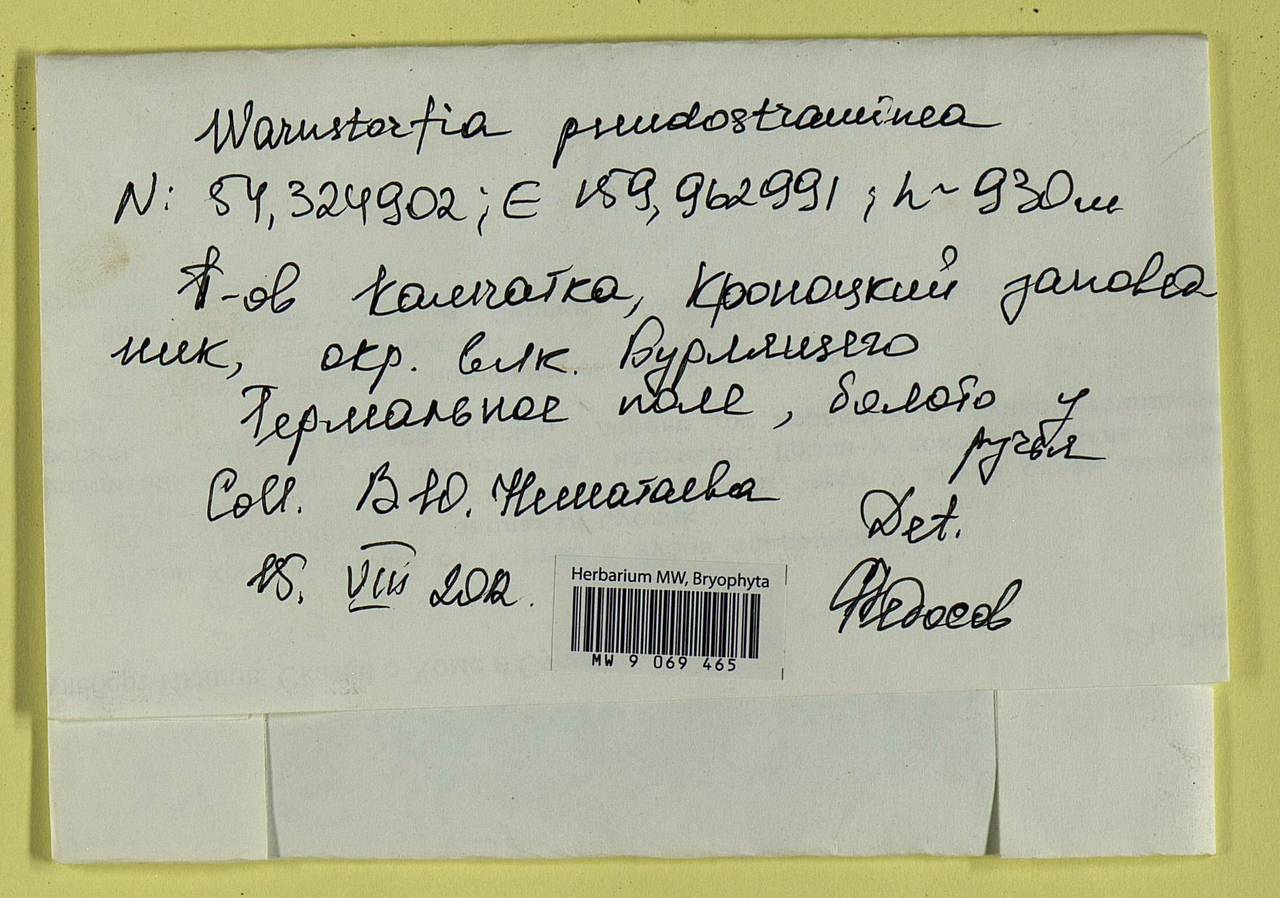 Warnstorfia pseudostraminea
N: 54,324902; E 159,962991; h~930м
П-ов Камчатка, Кроноцкий заповед
ник, окр. влк. Бурлящего
Термальное поле, болото у
ручья
Coll. В.Ю. Нешатаева
Det.
15. VIII 2012.
Федосов
Herbarium MW, Bryophyta
MW 9 069 465